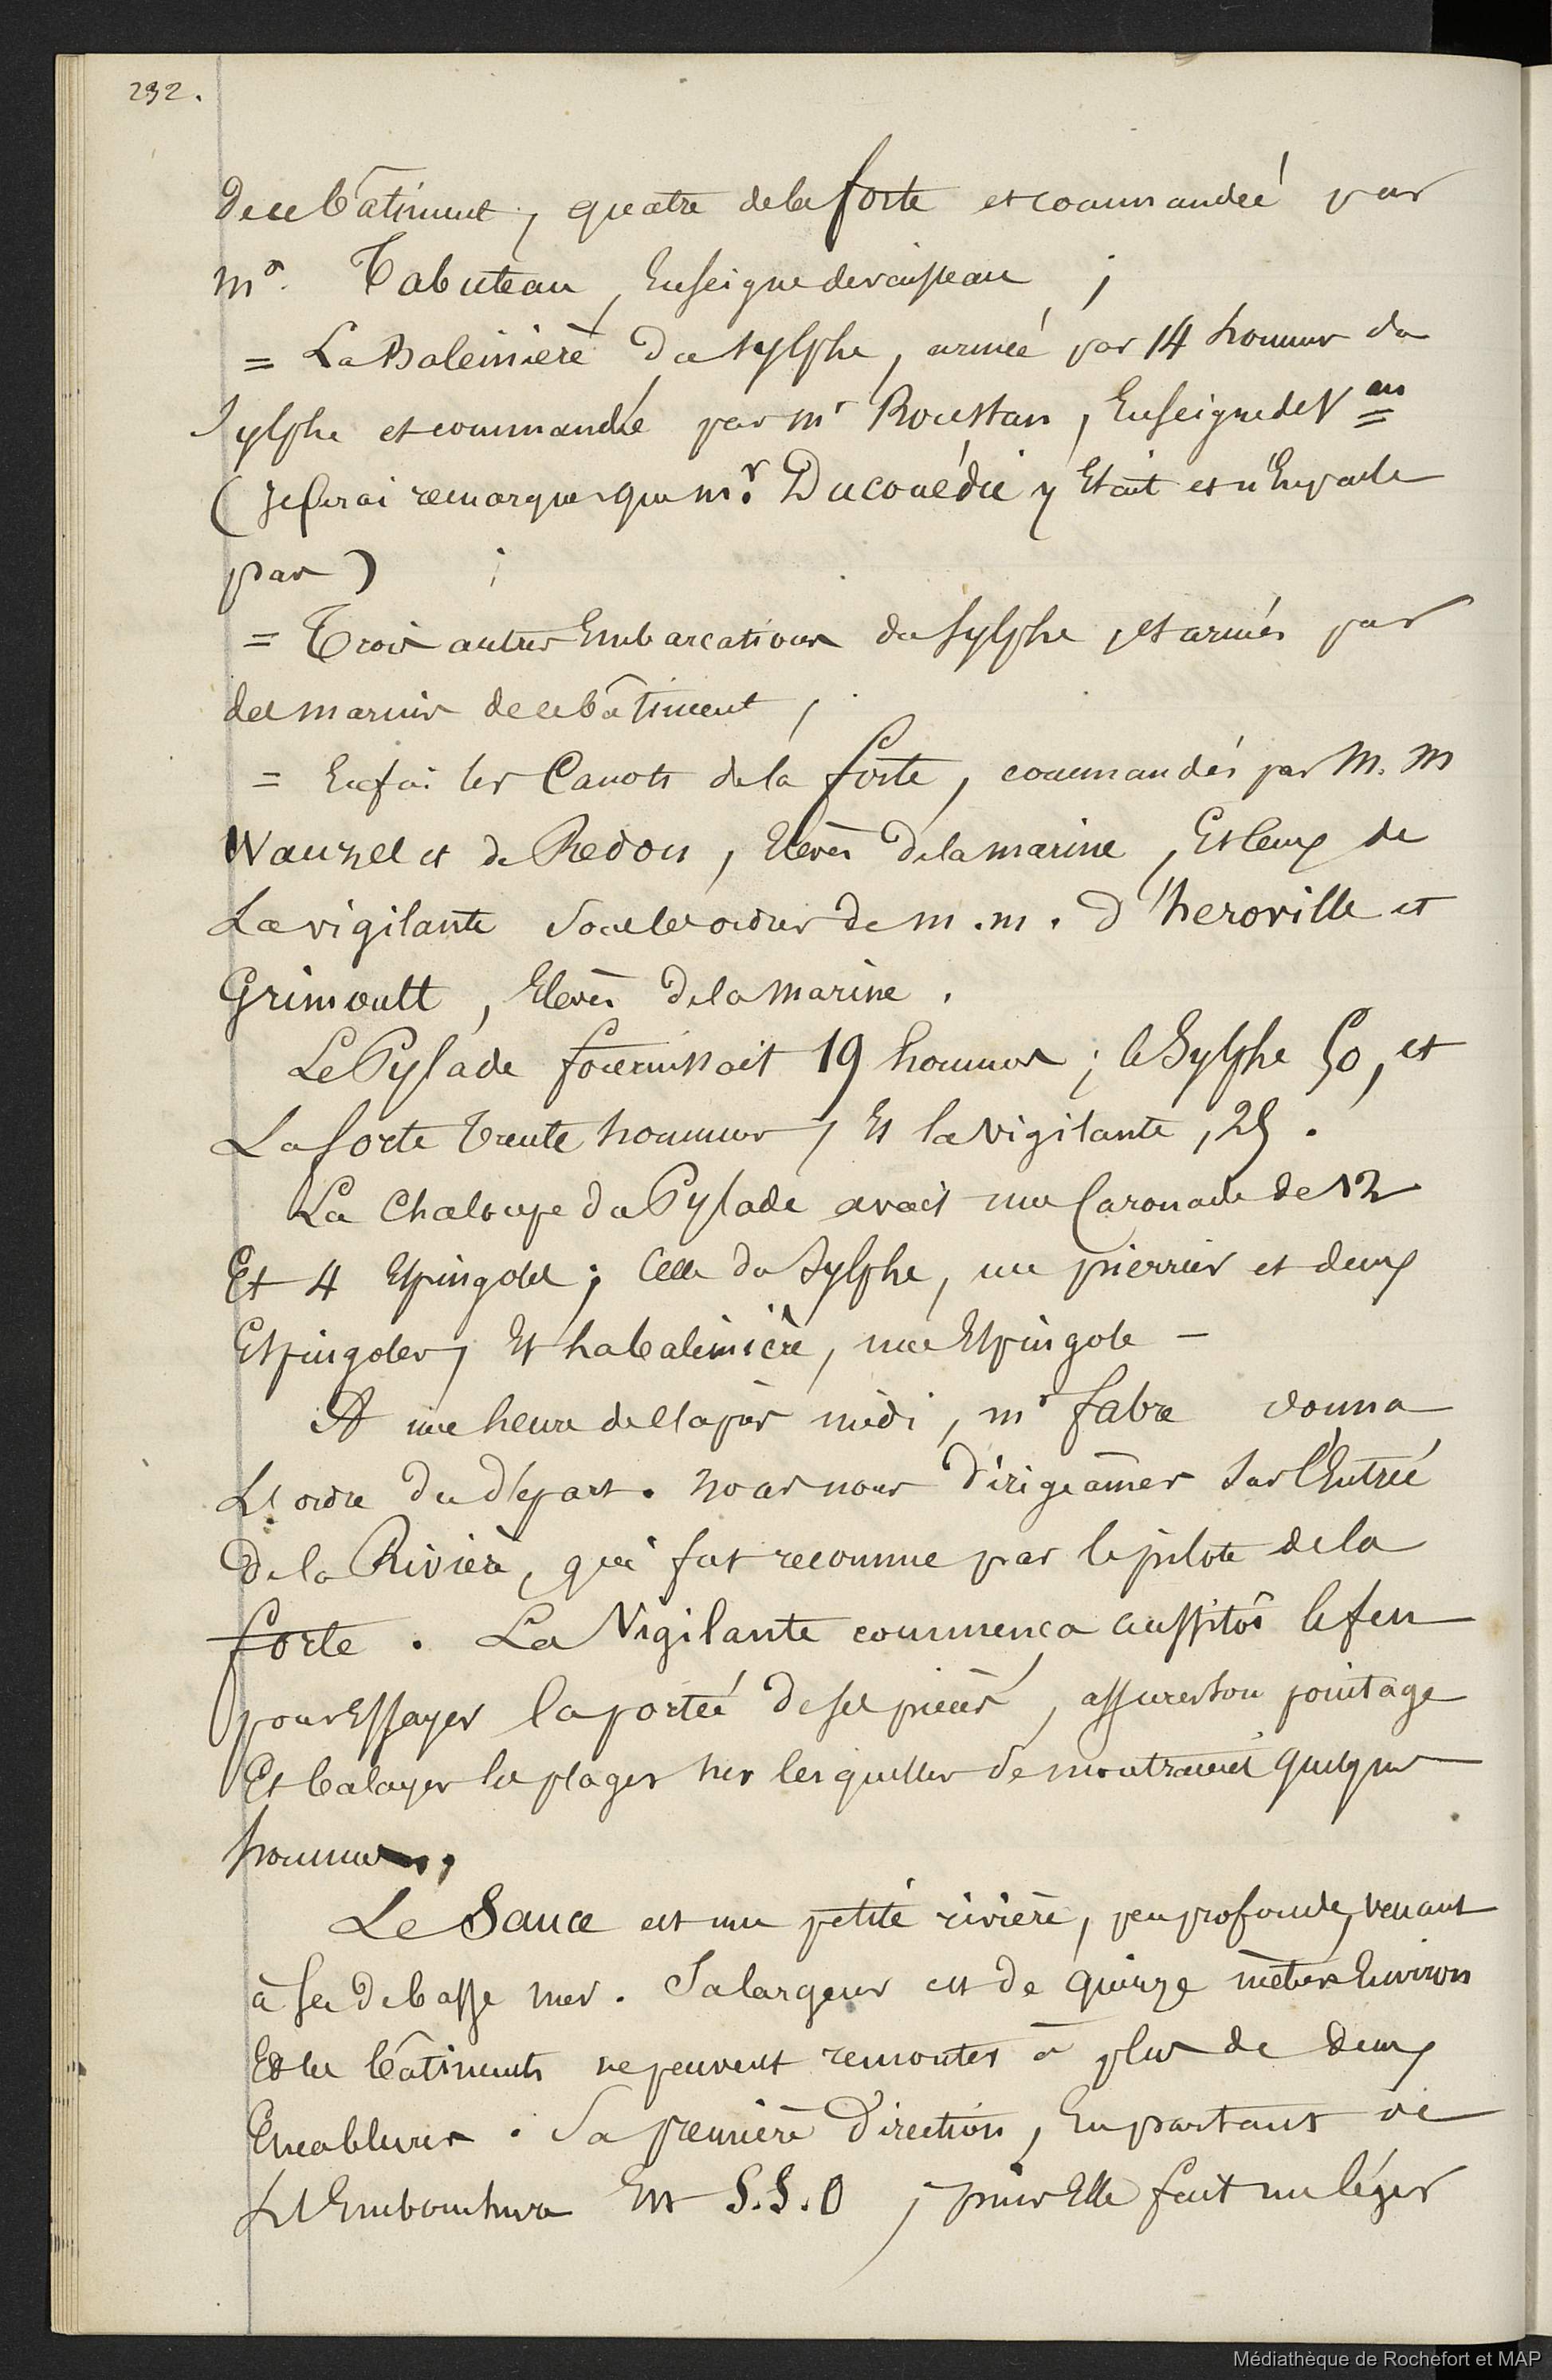 232.
de ce bâtiment, quatre de la forte et commandée par
Mr. Tabuteau, Enseigne de vaisseau ;
= La Baleinière du Sylphe, armée par 14 hommes du
Sylphe et commandée par Mr Roustan, Enseigne de Veau
(Je ferai remarquer que Mr. Ducouédie y Etait et n'En parle
pas) ;
= Trois autres Embarcations du Sylphe, et armés par
des marins de ce bâtiment,
= Enfin les Canots de la forte, commandés par M. M
Wauzel et de Redon, Elevès de la marine, Et Ceux de
La vigilante Sous les ordres de m. m. d'heroville et
Grimoult, Elevès de la marine.
Le Pylade fournissait 19 hommes ; le Sylphe 50, et
La forte trente hommes, Et la Vigilante, 25.
La Chaloupe du Pylade avait une Caronade de 12
Et 4 Espingoles ; Celle du Sylphe, un pierrier et deux
Espingoles, Et la baleinière, une Espingole —
A une heure de l'après midi, Mr fabre donna
L'ordre du départ. nous nous dirigeâmes Sur l'Entrée
de la Rivière, qui fut reconnue par le pilote de la
forte. La Vigilante commença aussitôt le feu
pour Essayer la portée de ses pièces, assurer son pointage
Et balayer les plages sur lesquelles se montraient quelques
hommes.
Le Sance est une petite rivière, peu profonde, venant
à Sec de basse mer. Sa largeur est de quinze mètres Environ
Et les bâtiments ne peuvent remonter à plus de deux
Encablures. Sa première direction, En partant de
L'Embouchure Est S.S.O, puis Elle fait un léger
Médiathèque de Rochefort et MAP